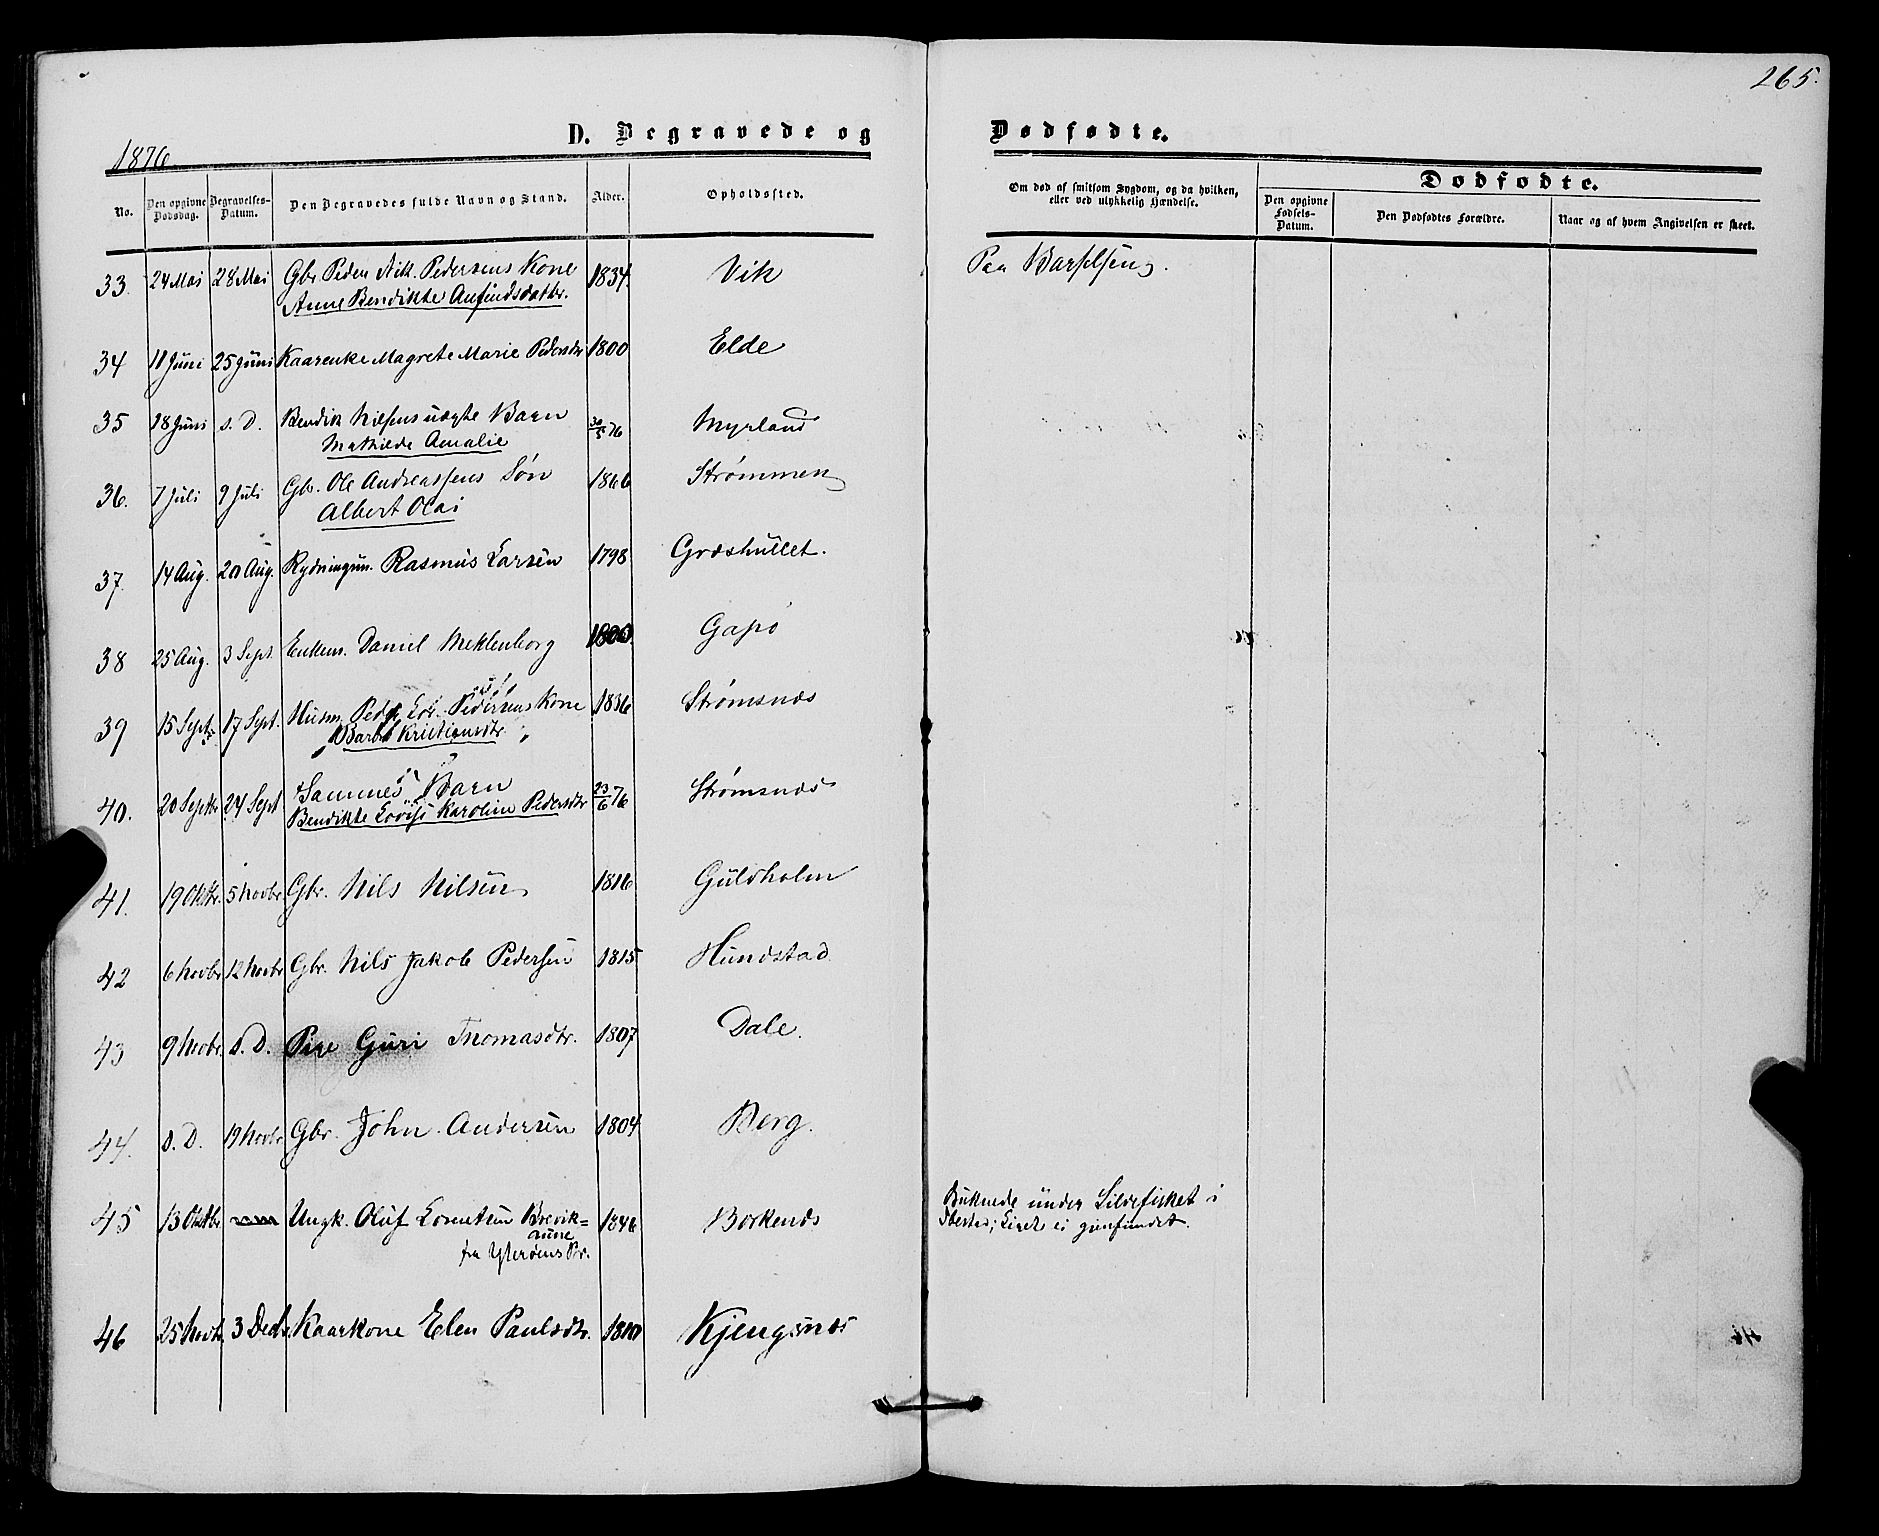 265.
D. Begravede og Dødfødte.
1876
No.
Den opgivne Dødsdag.
Begravelses-Datum.
Den Begravedes fulde Navn og Stand.
Alder.
Opholdssted.
Om død af smitsom Sygdom, og da hvilken, eller ved ulykkelig Hændelse.
Dødfødte.
Den opgivne Fødsels-Datum.
Den Dødfødtes Forældre.
Naar og af hvem Angivelsen er skeet.
33. 24 Mai 28 Mai Gbr. Peder Nik. Pedersens Kone 1834. Vik Paa Barselseng.
Anne Benedikte Anfindsdatter.
34 11 Juni 25 Juni Kaarenke Magrete Marie Pedersdtr 1800 Elde
35 18 Juni s. D. Bendik Nilsens uægte Barn 30/5 76 Myrland
Mathilde Amalie
36. 7 Juli 9 Juli Gbr. Ole Andreassens Søn 1866 Strømmen
Albert Olai
37. 14 Aug. 20 Aug. Rydningsm. Rasmus Larsen 1798 Græshullet.
38 25 Aug. 3 Sept. Enkem. Daniel Meklenborg 1800 Gapø
39 15 Sept. 17 Sept. Husm. Peder Edv. Pedersens Kone 1836 Strømsnæs
Barbra Kristiansdtr.
40. 20 Septbr 24 Sept Sammes Barn 23/6 76 Strømsnæs
Bendikte Lovise Karoline Pedersdtr
41. 19 Oktbr. 5 Novbr. Gbr. Nils Nilsen 1816 Guldholm
42 6 Novbr 12 Novbr Gbr. Nils Jakob Pedersen 1815 Hundstad
43 9 Novbr. s. D. Pige Guri Thomasdtr. 1807 Dale.
44. s. D. 19 Novbr Gbr. John Andersen 1804 Berg.
45 13 Oktbr Ungk. Oluf Lorentsen Brevik= 1846 Borkenæs Druknede under Sildefisket i
aune
fra Ytterøens Pr. Ibestad; Liget ei gjenfundet.
46 25 Novbr 3 Decbr Kaarkone Elen Paulsdtr. 1810 Kjengsnæs